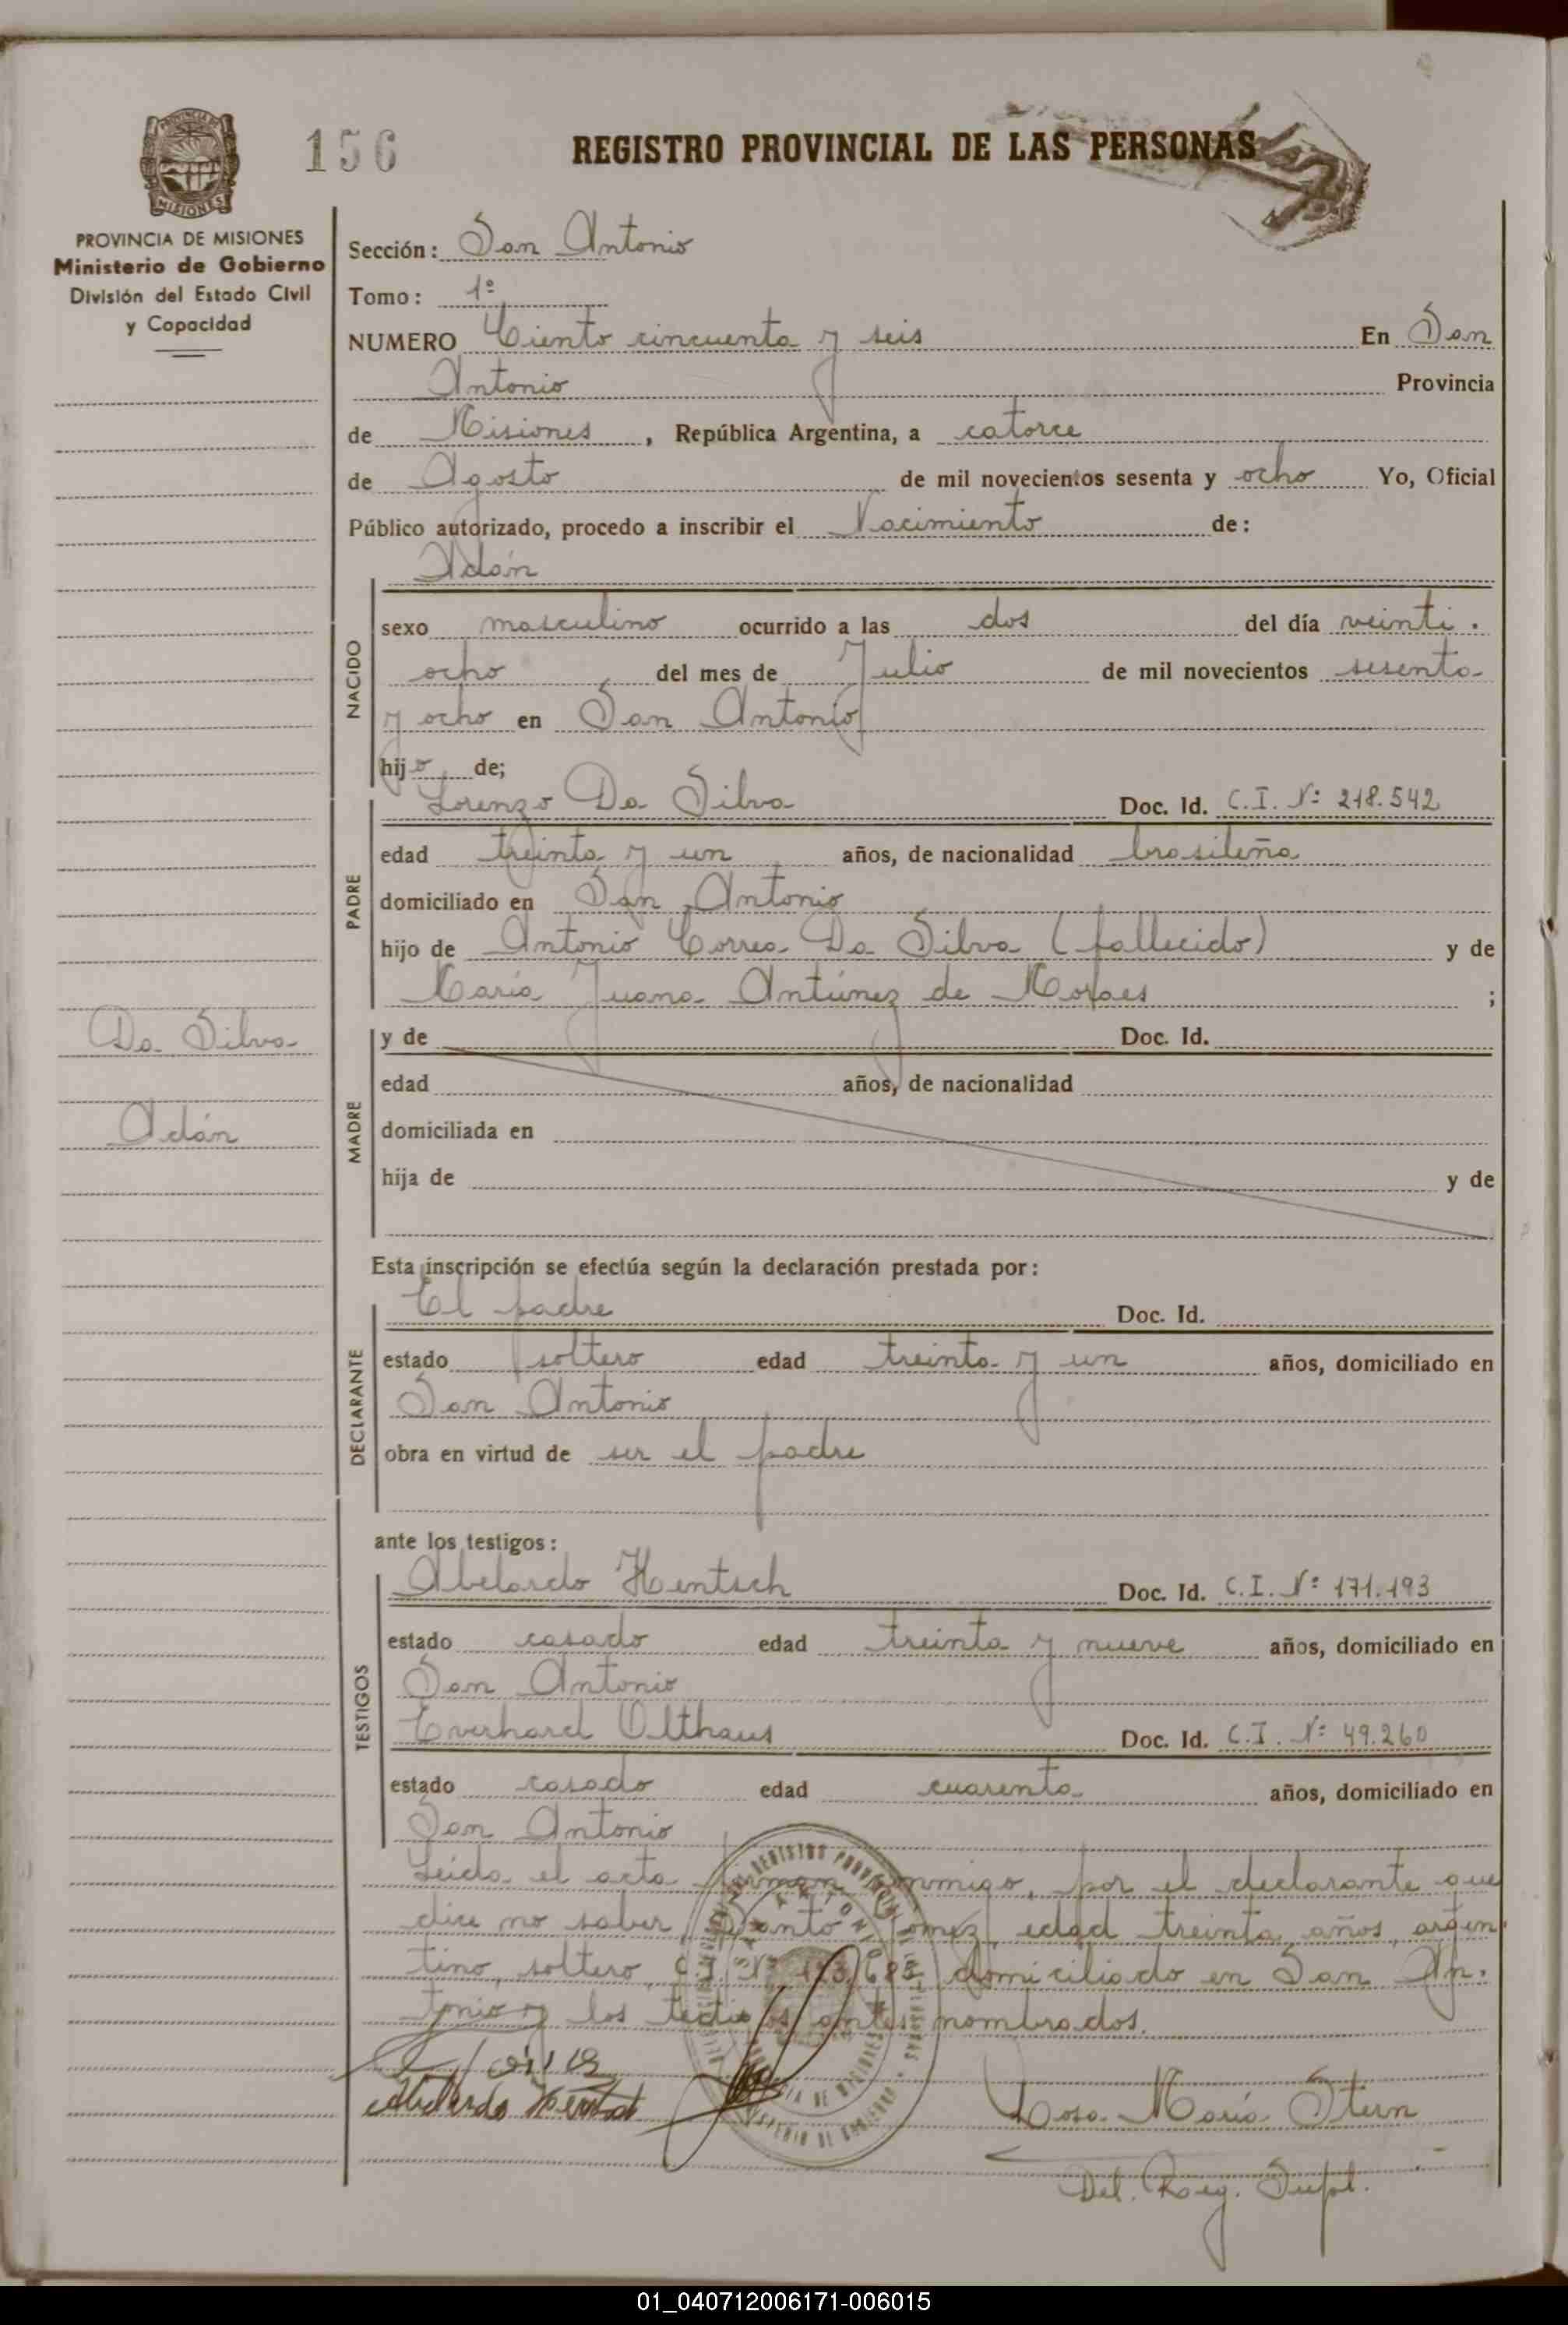 156
REGISTRO PROVINCIAL DE LAS PERSONAS
PROVINCIA DE MISIONES
Ministerio de Gobierno
División del Estado Civil
y Capacidad
Sección: San Antonio
Tomo: 1º
NUMERO Ciento cincuenta y seis En San
Antonio Provincia
de Misiones, República Argentina, a catorce
de Agosto de mil novecientos sesenta y ocho Yo, Oficial
Público autorizado, procedo a inscribir el Nacimiento de:
Adán
NACIDO
sexo masculino ocurrido a las dos del día veinti.
ocho del mes de Julio de mil novecientos sesenta
y ocho en San Antonio
hijo de;
PADRE
Lorenzo Da Silva Doc. Id. C.I. Nº 218.542
edad treinta y un años, de nacionalidad brasileña
domiciliado en San Antonio
hijo de Antonio Correa Da Silva (fallecido) y de
María Juana Antúnez de Moraes ;
Da Silva
Adán
MADRE
y de Doc. Id.
edad años, de nacionalidad
domiciliada en
hija de y de
Esta inscripción se efectúa según la declaración prestada por:
DECLARANTE
El padre Doc. Id.
estado soltero edad treinta y un años, domiciliado en
San Antonio
obra en virtud de ser el padre
ante los testigos:
TESTIGOS
Abelardo Hentsch Doc. Id. C.I. Nº 171.193
estado casado edad treinta y nueve años, domiciliado en
San Antonio
Everhard Olthaus Doc. Id. C.I. Nº 49.260
estado casado edad cuarenta años, domiciliado en
San Antonio
Leída el acta firman conmigo, por el declarante que
dice no saber, Santo Gomez, edad treinta años, argen
tino, soltero, C.I. Nº domiciliado en San An.
tonio y los testigos antes nombrados.
Abelardo Hentsch
Rosa María Stern
Del. Reg. Supl.
01_040712006171-006015